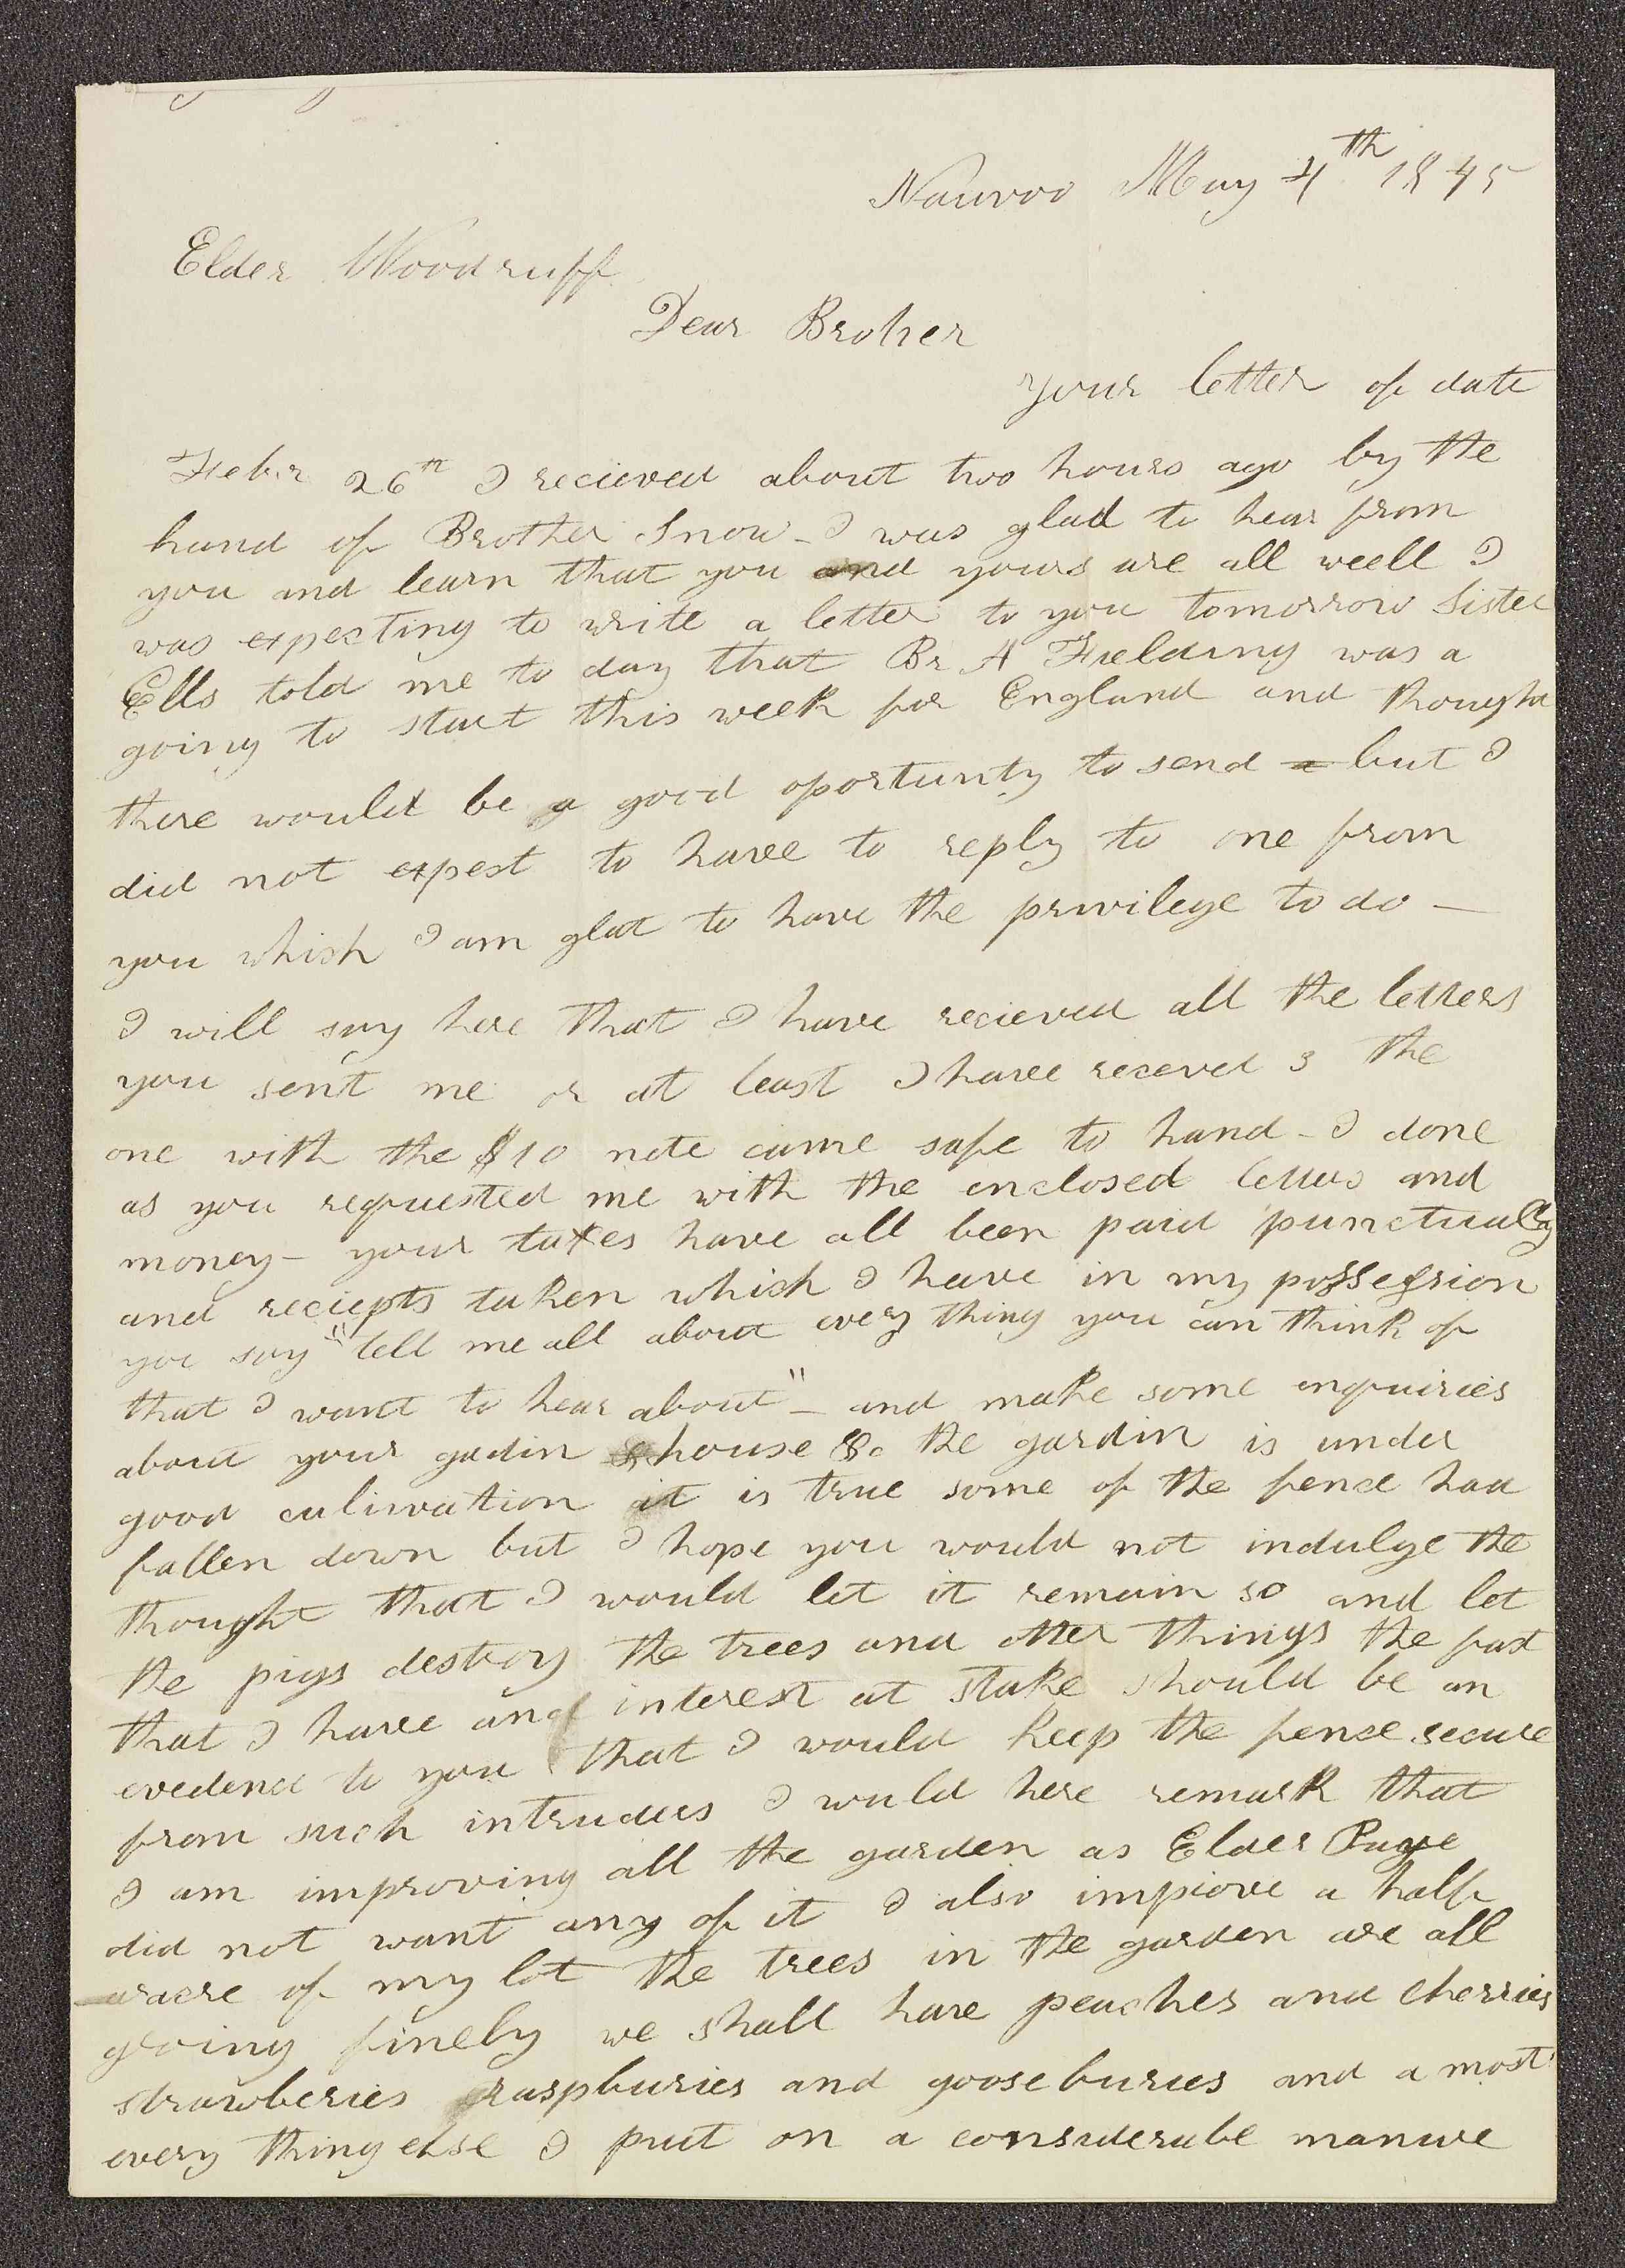 Nauvoo May 4th 1845
Elder Woodruff
Dear Broher
your letter of date
Febr 26th I recieved about two hours ago by the
hand of Brother Snow - I was glad to hear from
you and learn that you and yours are all weell I
was expecting to write a letter to you tomorrow Sister
Ells told me to day that Br A Fielding was a
going to start this week for England and thought
there would be a good oportunty to send a but I
did not expect to have to reply to one from
you which I am glat to have the privilege to do -
I will say here that I have recieved all the letters
you sent me or at least I have receved 3 the
one with the $10 note came safe to hand - I done
as you requested me with the enclosed letters and
money - your taxes have all been paid punctually
and reciepts taken which I have in my possession
you say "tell me all about every thing you can think of
that I want to hear about" - and make some enquiries
about your gadin & house &c the gardin is under
good culivation it is true some of the fence had
fallen down but I hope you would not indulge the
thought that I would let it remain so and let
the pigs destroy the trees and other things the fact
that I have and interest at stake should be an
evedence to you that I would keep the fence secure
from such intruders I would here remark that
I am improving all the garden as Elder Page
did not want any of it I also improve a half
acre of my lot the trees in the garden are all
groing finely we shall have peaches and cherries
strawberies raspburies and gooseburies and a most
every thing else I put on a considerabe manure